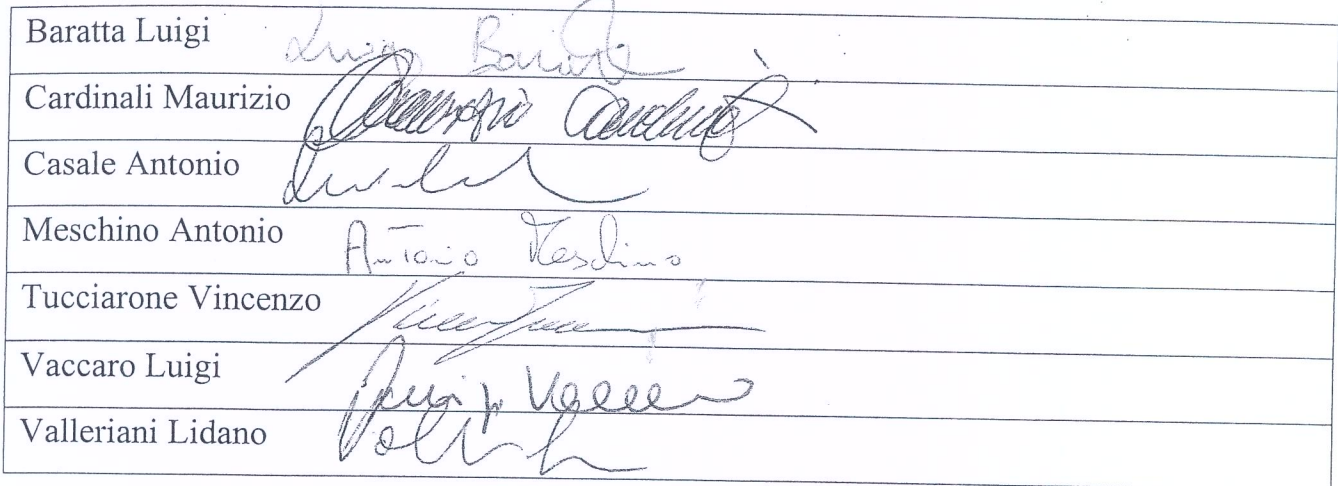 Baratta Luigi Luigi Baratta
Cardinali Maurizio Maurizio Cardinali
Casale Antonio
Meschino Antonio Antonio Meschino
Tucciarone Vincenzo
Vaccaro Luigi Luigi Vaccaro
Valleriani Lidano